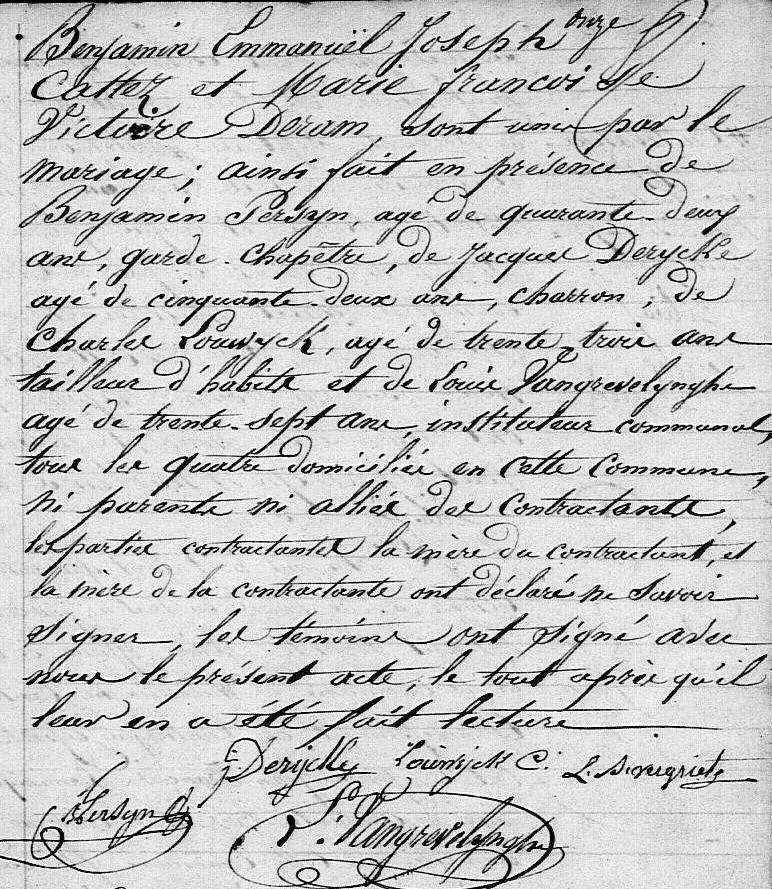 onze
Benjamin Emmanuël Joseph
Cattez et Marie francoise
Victoire Deram, sont unis par le
mariage; ainsi fait en présence de
Benjamin Persyn, agé de quarante-deux
ans, garde-chapêtre, de Jacques Derycke
agé de cinquante-deux ans, charron, de
Charles Louwyck, agé de trente-trois ans
tailleur d'habits et de Louis Vangrevelynghe
agé de trente-sept ans, instituteur communal,
tous les quatre domiciliés en cette commune,
ni parents ni alliés des contractants,
les parties contractantes la mère du contractant, et
la mère de la contractante ont déclaré ne savoir
signer, les témoins ont signé avec
nous le présent acte, le tout après qu'il
leur en a été fait lecture
J. Derycke Louwyck C.
B. Persyn L. Vangrevelynghe